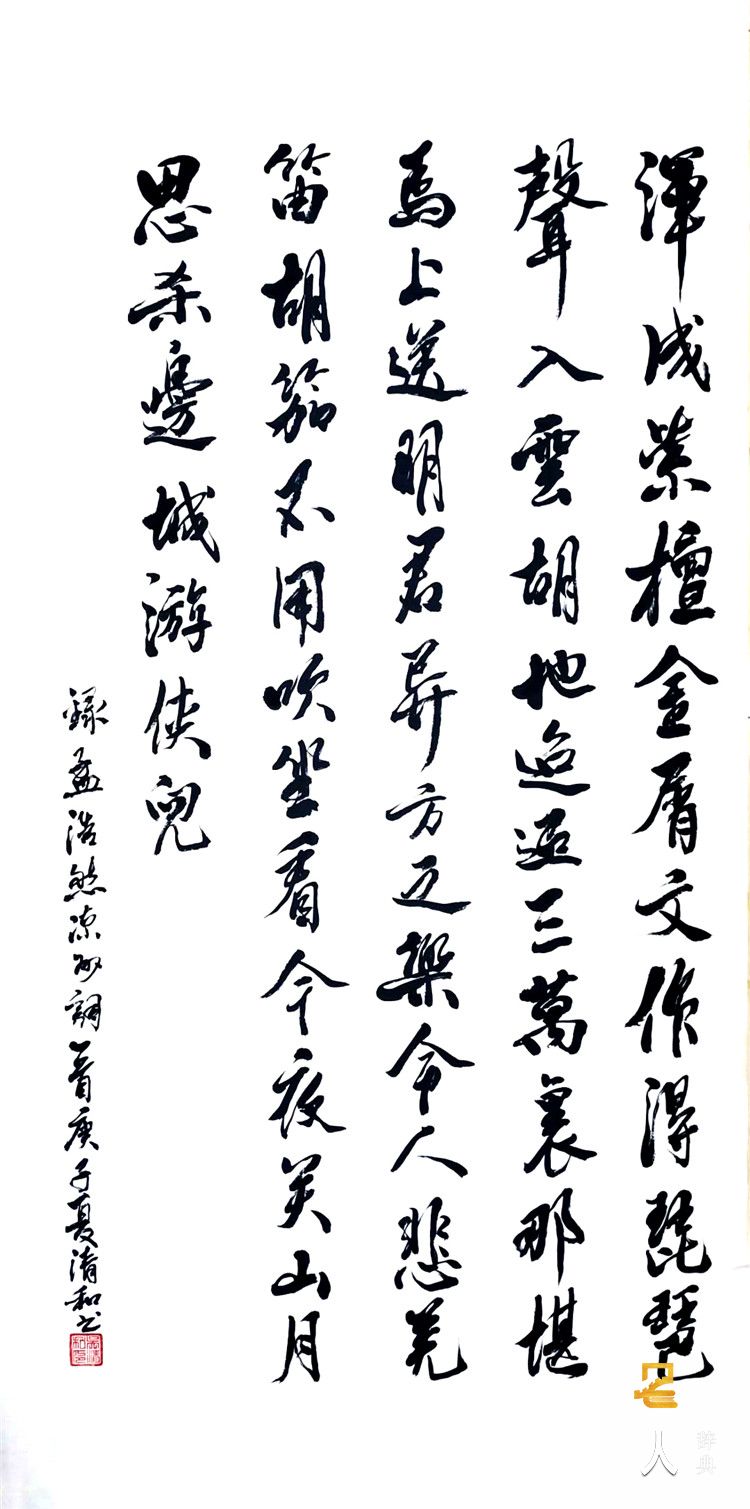 渾成紫檀金屑文作得琵琶
聲入雲胡地迢遞三萬里那堪
馬上送明君異方之樂令人悲羌
笛胡笳不用吹坐看今夜关山月
思杀邊城游俠兒
録孟浩然凉州詞一首庚子夏清和书
人
辞典